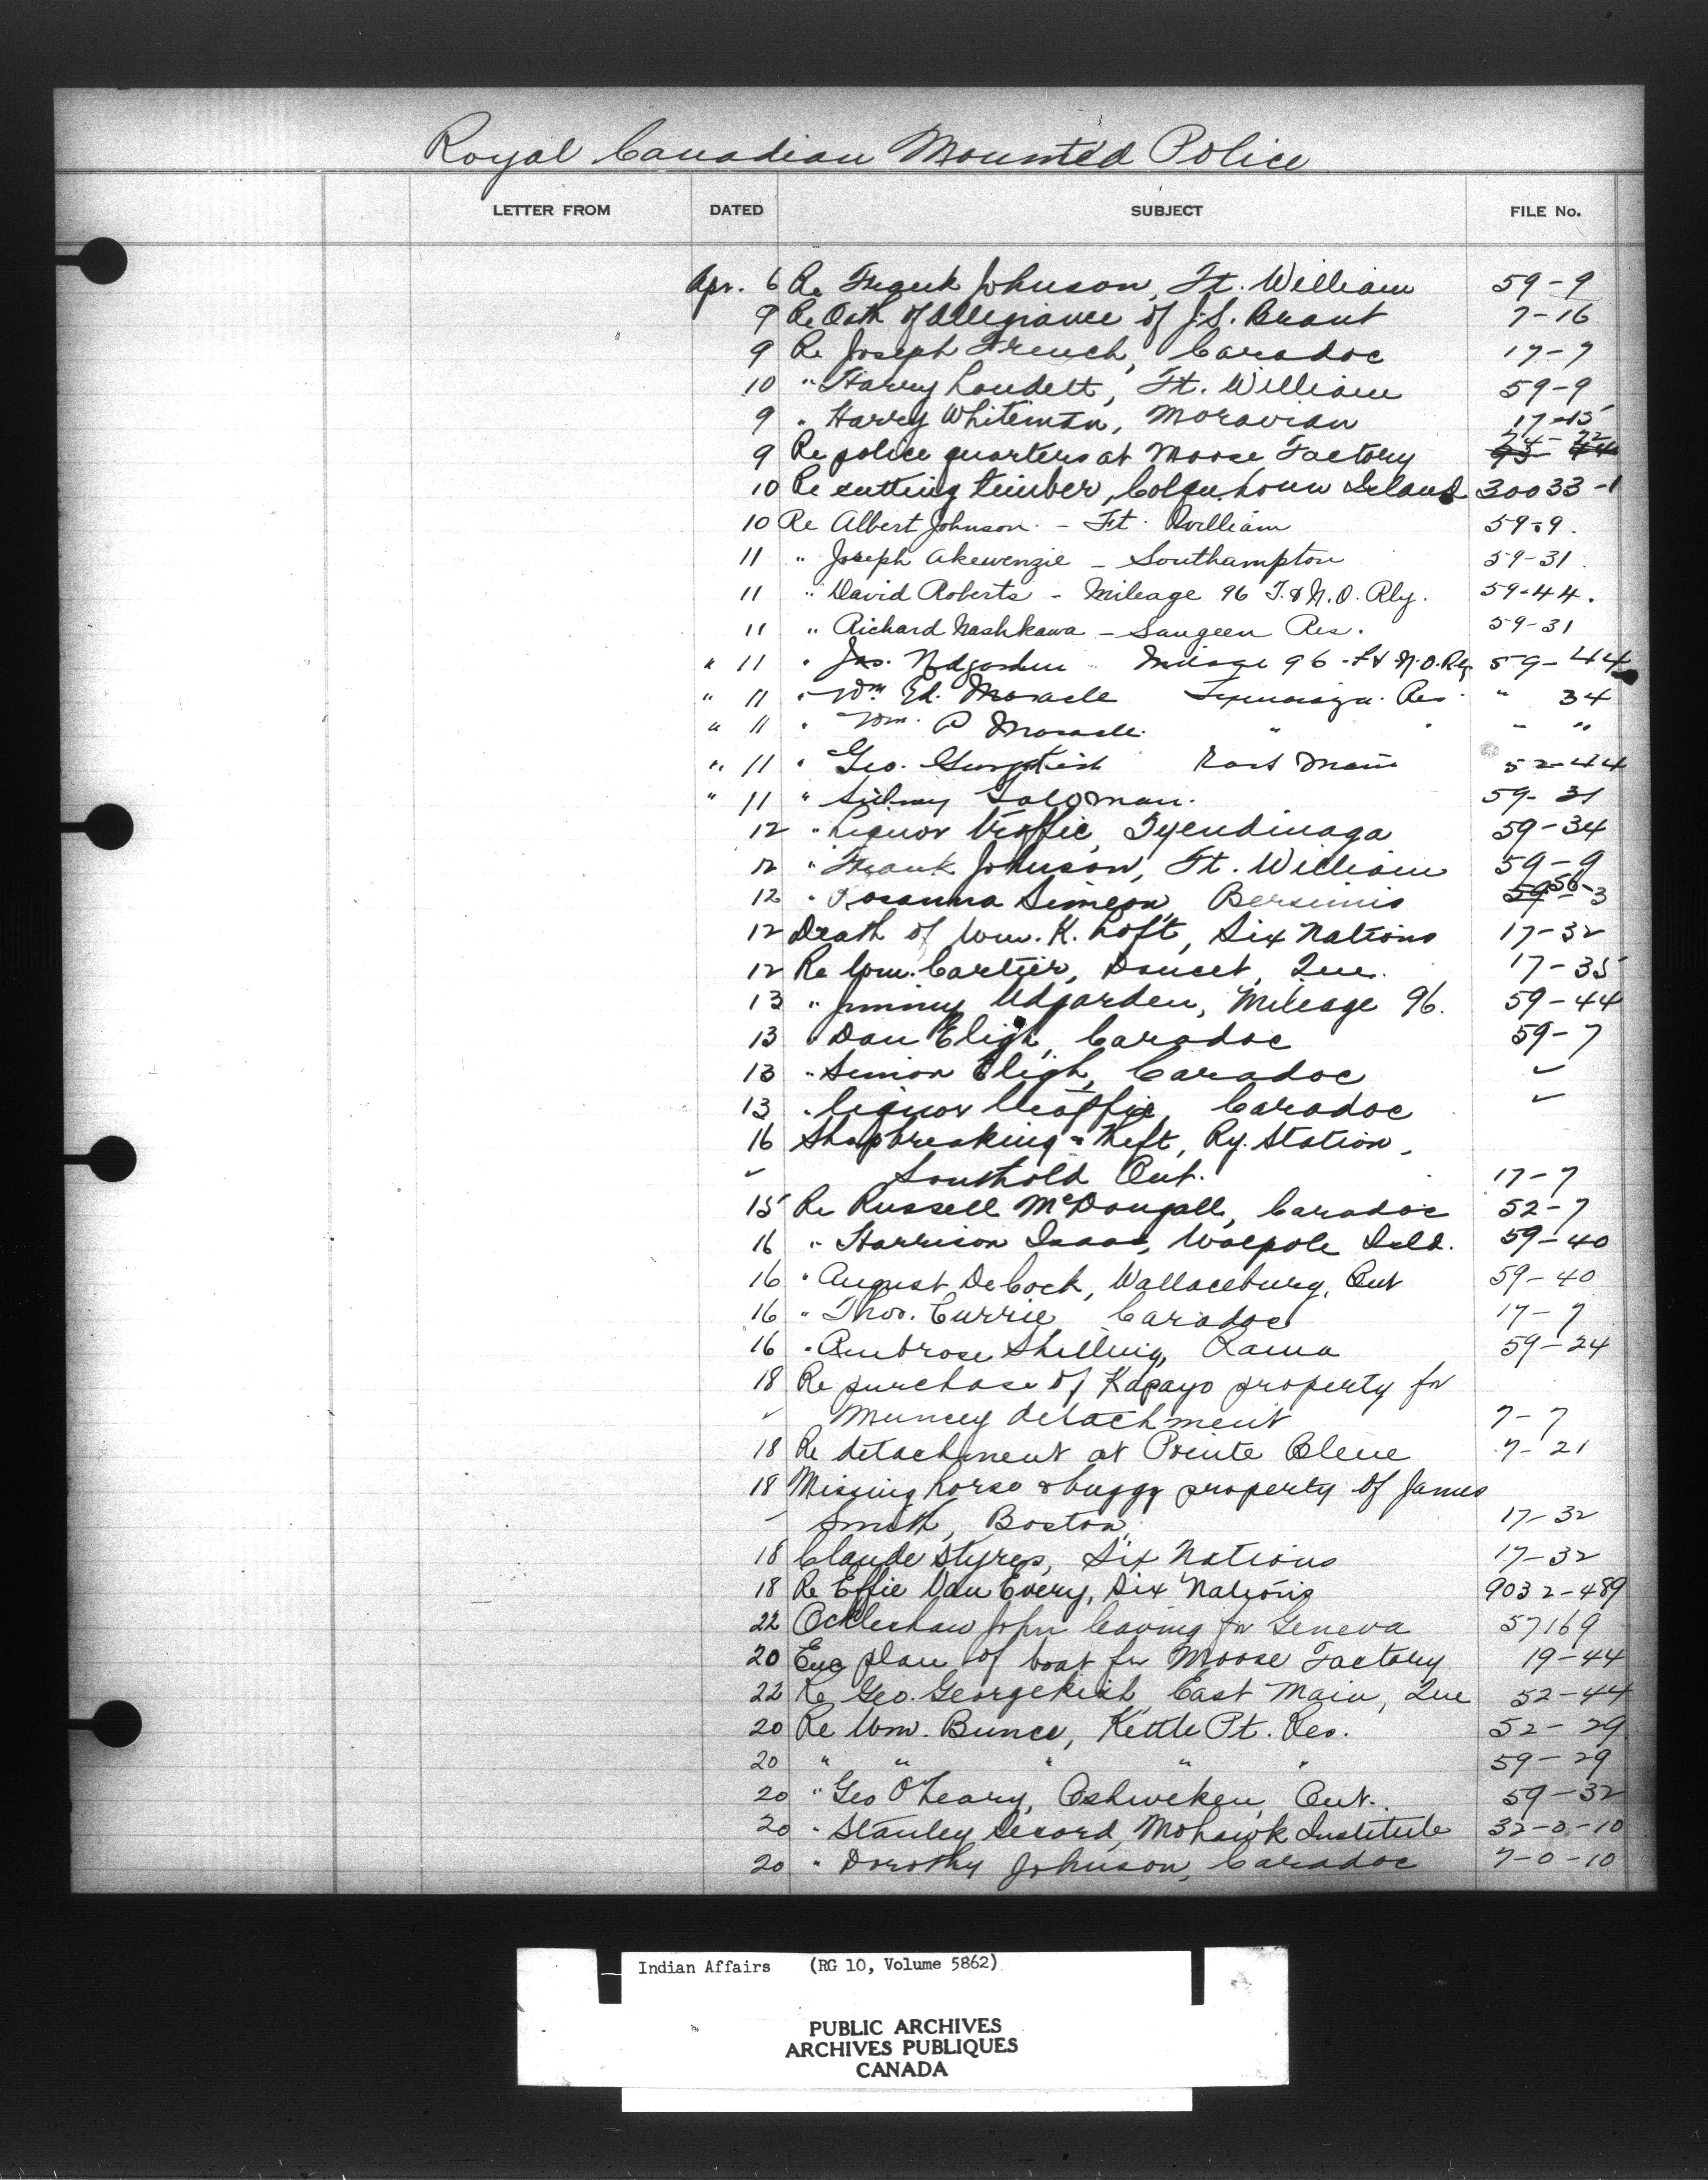 Royal Canadian Mounted Police
LETTER FROM DATED SUBJECT FILE No.
Apr. 6 Re Frank Johnson, Ft. William 59-9
9 Re Oath of Allegiance of J.S. Brant 7-16
9 Re Joseph French, Caradoc 17-7
10 " Harry Loudelt, Ft. William 59-9
9 " Harry Whiteman, Moravian 17-15
9 Re police quarters at Moose Factory
10 Re cutting timber, Colquhoun Island 30033-1
10 Re Albert Johnson - Ft. William 59-9.
11 " Joseph Akewenzie - Southampton 59-31.
11 " David Roberts - Mileage 96 T.&N.O. Rly. 59-44.
11 " Richard Nashkawa - Saugeen Res. 59-31
" 11 " Jas. Mileage 96 - T&N.O. Rly 59-44
" 11 " Wm Ed. Maracle Tyendinaga Res. " 34
" 11 " Wm. P Maracle " " " "
" 11 " Geo. Georgekish East Main 52-44
" 11 " Sidney Soloman. 59-31
12 " Liquor traffic, Tyendinaga 59-34
12 " Frank Johnson, Ft. William 59-9
12 " Rosanna Simeon, Bersimis 56-3
12 Death of Wm. K. Loft, Six Nations 17-32
12 Re Wm. Cartier, Doucet, Que. 17-35
13 " Jimmy Udgarden, Mileage 96. 59-44
13 " Dan Eligh, Caradoc 59-7
13 " Simon Eligh, Caradoc "
13 " Liquor Traffic, Caradoc "
16 Shopbreaking & theft, Ry. Station,
" Southold Ont. 17-7
15 Re Russell McDougall, Caradoc 52-7
16 " Harrison Isaac, Walpole Isld. 59-40
16 " August DeCock, Wallaceburg, Ont 59-40
16 " Thos. Currie Caradoc 17-7
16 " Ambrose Shilling, Rama 59-24
18 Re purchase of Kapayo property for
" Muncey detachment 7-7
18 Re detachment at Pointe Bleue 7-21
18 Missing horse & buggy property of James
" Smith, Boston, 17-32
18 Claude Styres, Six Nations 17-32
18 Re Effie Van Every, Six Nations 9032-489
22 Ockleshaw John leaving for Geneva 57169
20 Enc plan of boat for Moose Factory 19-44
22 Re Geo. Georgekish East Main, Que 52-44
20 Re Wm. Bunce, Kettle Pt. Res. 52-29
20 " " " " " 59-29
20 " Geo O'Leary, Oshweken, Ont. 59-32
20 " Stanley Secord, Mohawk Institute 32-0-10
20 " Dorothy Johnson, Caradoc 7-0-10
Indian Affairs (RG 10, Volume 5862)
PUBLIC ARCHIVES
ARCHIVES PUBLIQUES
CANADA